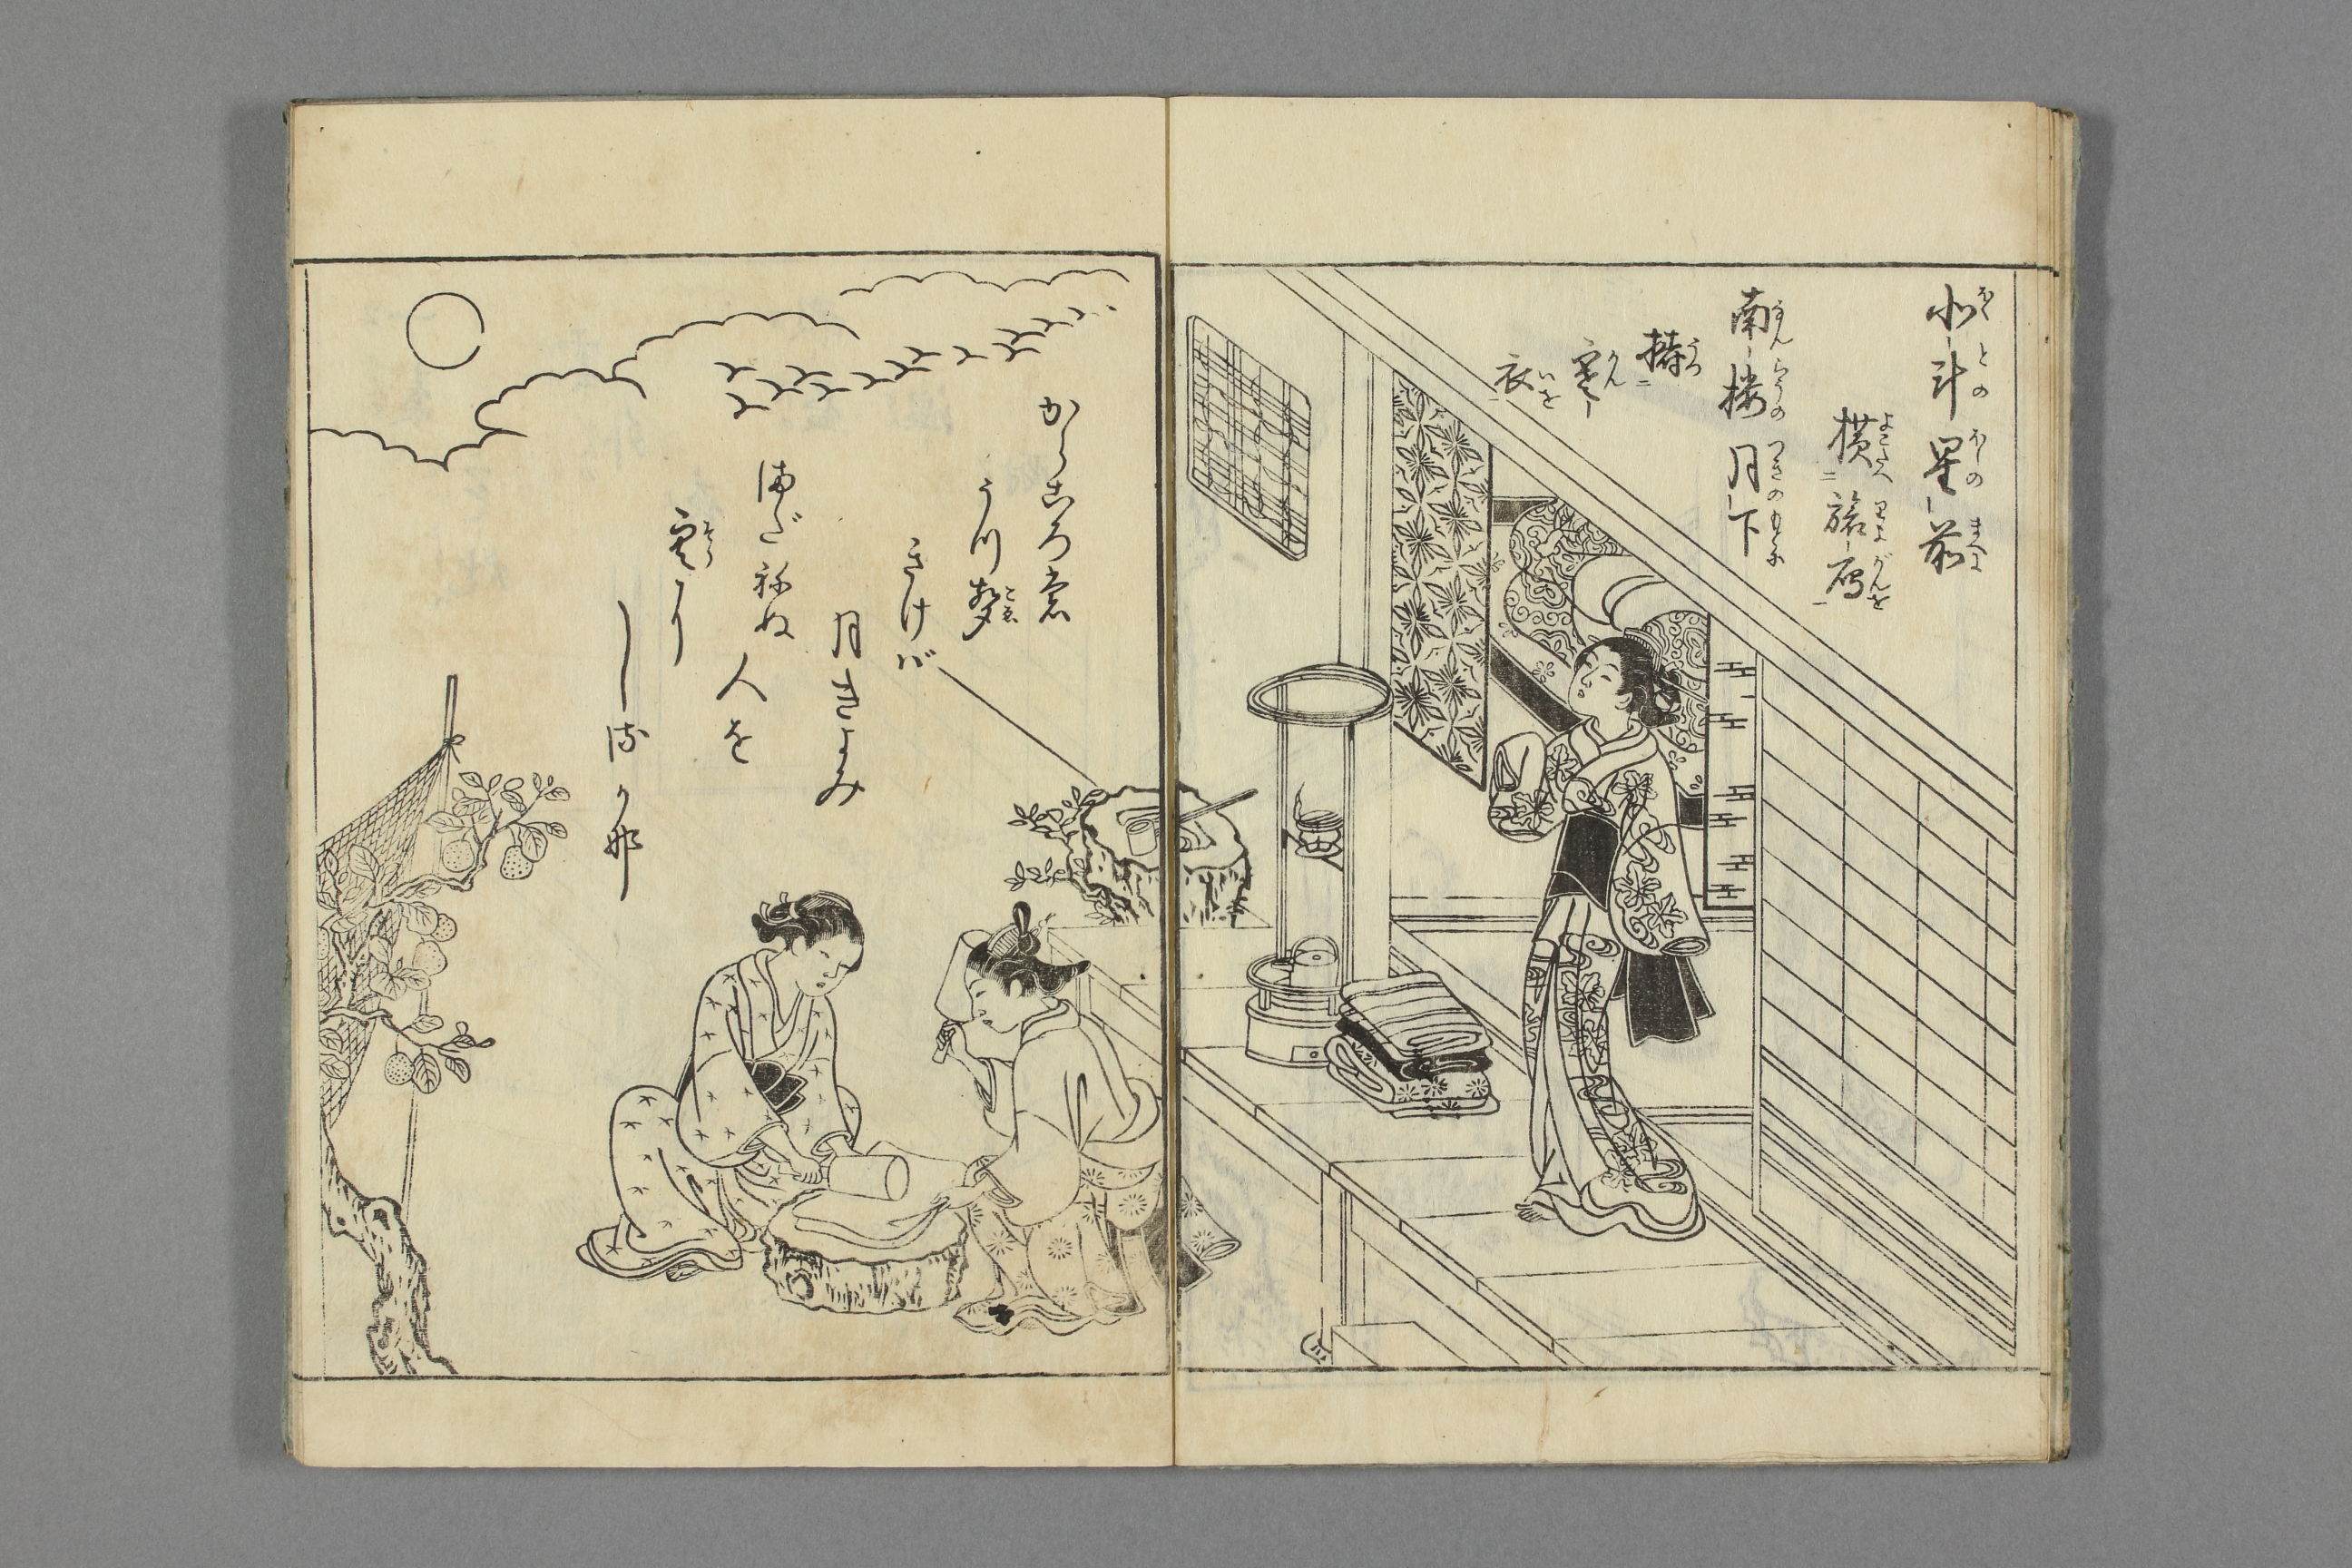 北斗星前
横二旅雁一
南楼月下
擣二
寒
衣一
から衣
うつ声
きけば
月きよみ
まだねぬ人を
空に
しるかな